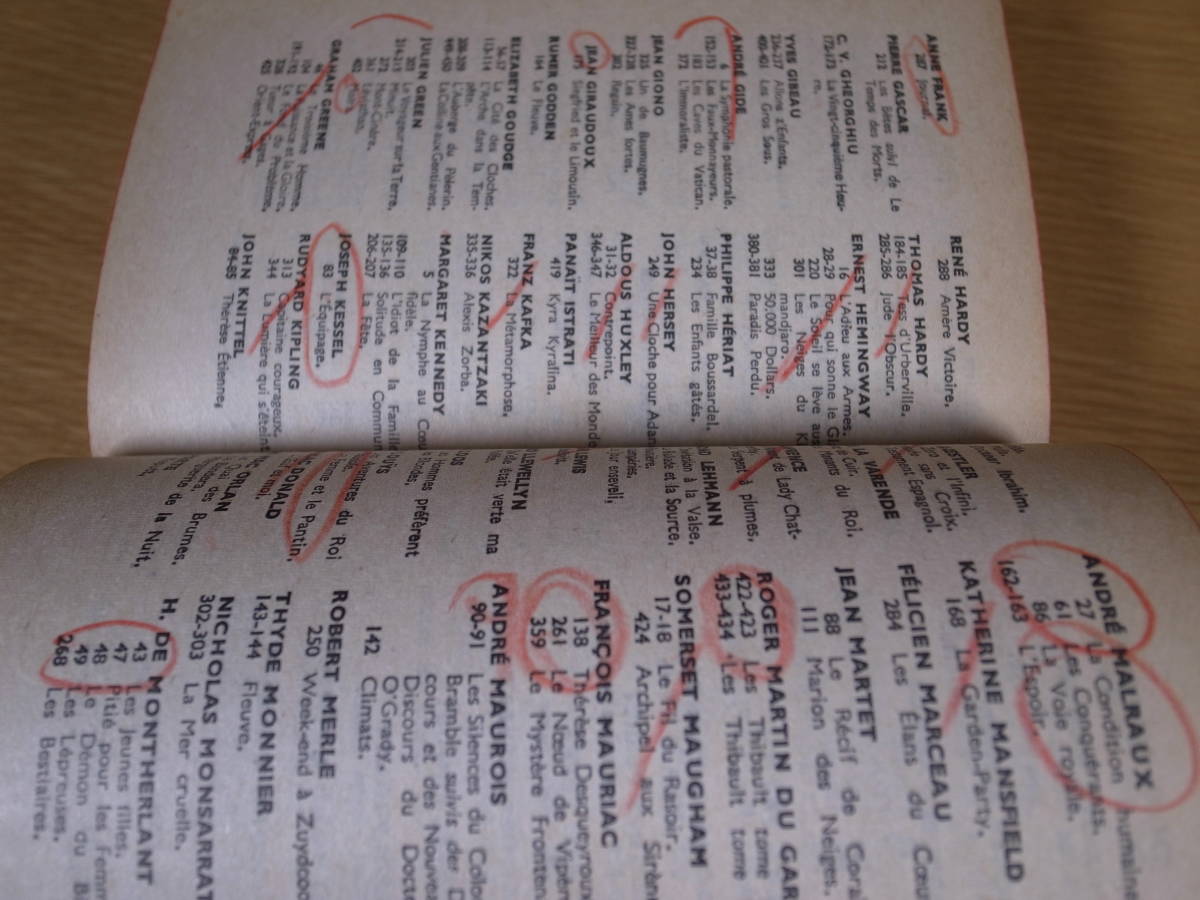 ANNE FRANK
287 Journal.
PIERRE GASCAR
212 Les Bêtes suivi de Le
Temps des Morts.
C. V. GHEORGHIU
172-173 La Vingt-cinquième Heu-
re.
YVES GIBEAU
236-237 Allons z'Enfants.
400-401 Les Gros Sous.
ANDRÉ GIDE
6 La Symphonie pastorale.
152-153 Les Faux-Monnayeurs.
182 Les Caves du Vatican.
372 L'Immoraliste.
JEAN GIONO
Un de Baumugnes.
Les Ames fortes.
Regain.
JEAN GIRAUDOUX
Siegfried et le Limousin.
RUMER GODDEN
164 Le Fleuve.
ELIZABETH GOUDGE
La Cité des Cloches.
113-114 L'Arche dans la Tem-
pête.
208-209 L'Auberge du Pèlerin.
La Colline aux Gentianes.
JULIEN GREEN
Le Voyageur sur la Terre.
Minuit.
Mont-Cinère.
Léviathan.
Moïra.
GRAHAM GREENE
Le Troisième Homme.
La Puissance et la Gloire.
Tueur à gages.
Orient-Express.
RENÉ HARDY
288 Amère Victoire.
THOMAS HARDY
184-185 Tess d'Urberville.
285-286 Jude l'Obscur.
ERNEST HEMINGWAY
16 L'Adieu aux Armes.
28-29 Pour qui sonne le Gl
220 Le Soleil se lève aus
301 Les Neiges du Ki
mandjaro.
333 50.000 Dollars.
380-381 Paradis Perdu.
PHILIPPE HÉRIAT
37-38 Famille Boussardel.
234 Les Enfants gâtés.
JOHN HERSEY
249 Une Cloche pour Adan
ALDOUS HUXLEY
31-32 Contrepoint.
346-347 Le Meilleur des Monde
PANAÏT ISTRATI
419 Kyra Kyralina.
FRANZ KAFKA
322 La Métamorphose.
NIKOS KAZANTZAKI
335-336 Alexis Zorba.
MARGARET KENNEDY
5 La Nymphe au Cœu
fidèle.
109-110 L'Idiot de la Famille
135-136 Solitude en Commun
206-207 La Fête.
JOSEPH KESSEL
83 L'Équipage.
RUDYARD KIPLING
313 Capitaine courageux.
344 La Lumière qui s'éteint
JOHN KNITTEL
84-85 Thérèse Étienne.
Ibrahim.
l'Infini.
Croix.
Espagnol.
VARENDE
Cuir.
du Roi.
de Lady Chat-
à plumes.
LEHMANN
à la Valse.
et la Source.
LEWIS
LLEWELLYN
était verte ma
Hommes préfèrent
du Roi
et le Pantin
DONALD
ORLAN
des Brumes.
de la Nuit.
ANDRÉ MALRAUX
27 La Condition humaine
61 Les Conquérants.
86 La Voie royale.
162-163 L'Espoir.
KATHERINE MANSFIELD
168 La Garden-Party.
FÉLICIEN MARCEAU
284 Les Élans du Cœur
JEAN MARTET
88 Le Récif de Coral
111 Marion des Neiges.
ROGER MARTIN DU GAR
422-423 Les Thibault tome
433-434 Les Thibault tome
SOMERSET MAUGHAM
17-18 Le Fil du Rasoir.
424 Archipel aux Sirène
FRANÇOIS MAURIAC
138 Thérèse Desqueyroux
261 Le Nœud de Vipère
359 Le Mystère Fronten
ANDRÉ MAUROIS
90-91 Les Silences du Colo
Bramble suivis der D
cours et des Nouvea
Discours du Docte
O'Grady.
142 Climats.
ROBERT MERLE
250 Week-end à Zuydcoo
THYDE MONNIER
143-144 Fleuve.
NICHOLAS MONSARRAT
302-303 La Mer cruelle.
H. DE MONTHERLANT
43 Les Jeunes filles.
47 Pitié pour les Femm
48 Le Démon du Bi
49 Les Lépreuses.
268 Les Bestiaires.